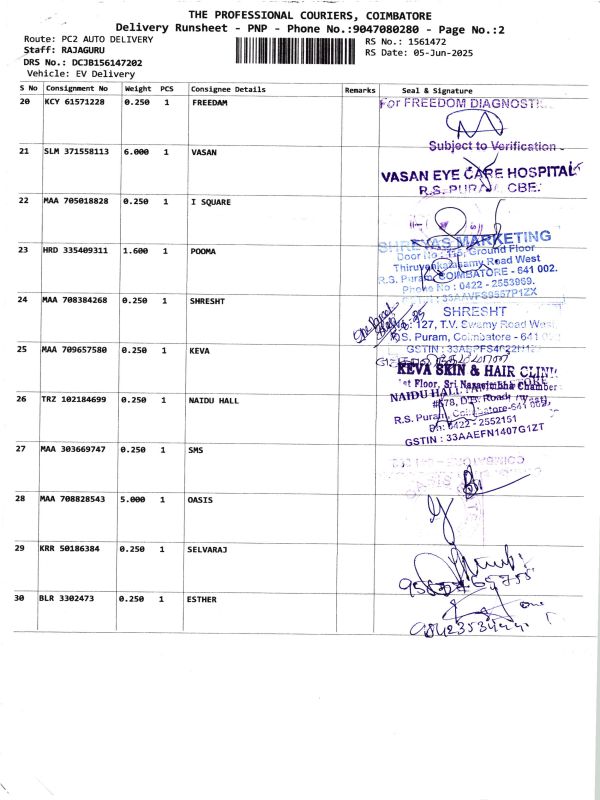 THE PROFESSIONAL COURIERS, COIMBATORE
Delivery Runsheet - PNP - Phone No.:9047080280 - Page No.:2
Route: PC2 AUTO DELIVERY
RS No.: 1561472
Staff: RAJAGURU
RS Date: 05-Jun-2025
DRS No.: DCJB156147202
Vehicle: EV Delivery
S No Consignment No Weight PCS Consignee Details Remarks Seal & Signature
20 KCY 61571228 0.250 1 FREEDAM
For FREEDOM DIAGNOSTI
Subject to Verification
21 SLM 371558113 6.000 1 VASAN
VASAN EYE CARE HOSPITAL
R.S. PURAM CBE.
22 MAA 705018828 0.250 1 I SQUARE
23 HRD 335409311 1.600 1 POOMA
SHREYAS MARKETING
Ground Floor
Road West
R.S. Puram, COIMBATORE - 641 002.
Phone No : 0422 - 2553969.
24 MAA 708384268 0.250 1 SHRESHT
SHRESHT
127, T.V. Swamy Road West
R.S. Puram, Coimbatore - 641
25 MAA 709657580 0.250 1 KEVA
KEVA SKIN & HAIR CLINI
Floor, Sri Narasimha Chamber
26 TRZ 102184699 0.250 1 NAIDU HALL
NAIDU HALL
R.S. Puram, Coimbatore-641 002,
Ph: 0422 - 2552151
GSTIN : 33AAEFN1407G1ZT
27 MAA 303669747 0.250 1 SMS
28 MAA 708828543 5.000 1 OASIS
29 KRR 50186384 0.250 1 SELVARAJ
30 BLR 3302473 0.250 1 ESTHER